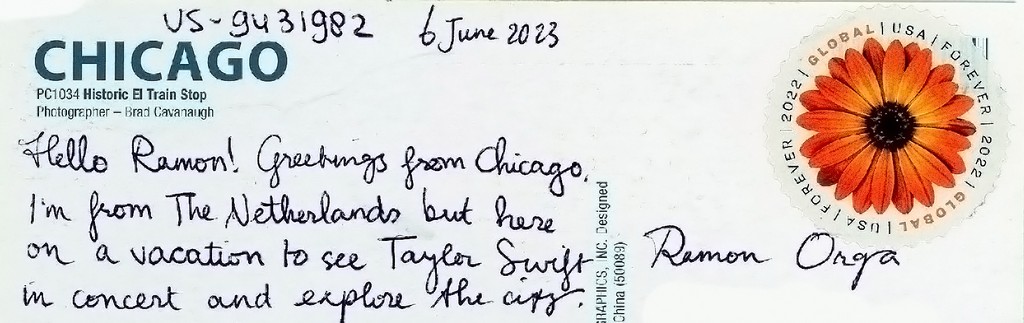 US-9431982 6 June 2023
CHICAGO
PC1034 Historic El Train Stop
Photographer – Brad Cavanaugh
Hello Ramon! Greetings from Chicago,
I'm from The Netherlands but here
on a vacation to see Taylor Swift
in concert and explore the city.
GRAPHICS, INC. Designed
China (50089)
GLOBAL | USA | FOREVER | 2022 | GLOBAL | USA | FOREVER | 2022 |
Ramon Orga